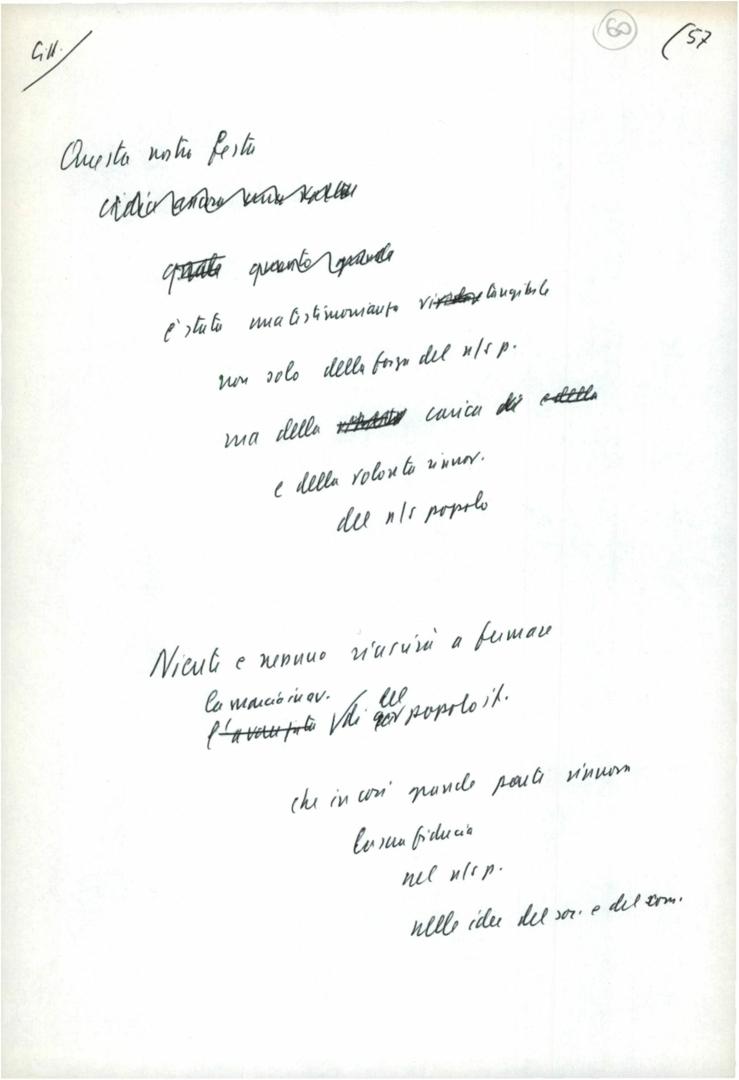 Gitt.
60
(57
Questa nostra festa
quale quanto grande
è stata una testimonianza tangibile
non solo della forza del n/s p.
ma della carica di e della
e della volontà rinnov.
del n/s popolo
Niente e nessuno riuscirà a fermare
la marcia in av.
l'avanzata di del popolo it.
che in così grande parte rinnova
la sua fiducia
nel n/s p.
nelle idee del soc. e del com.